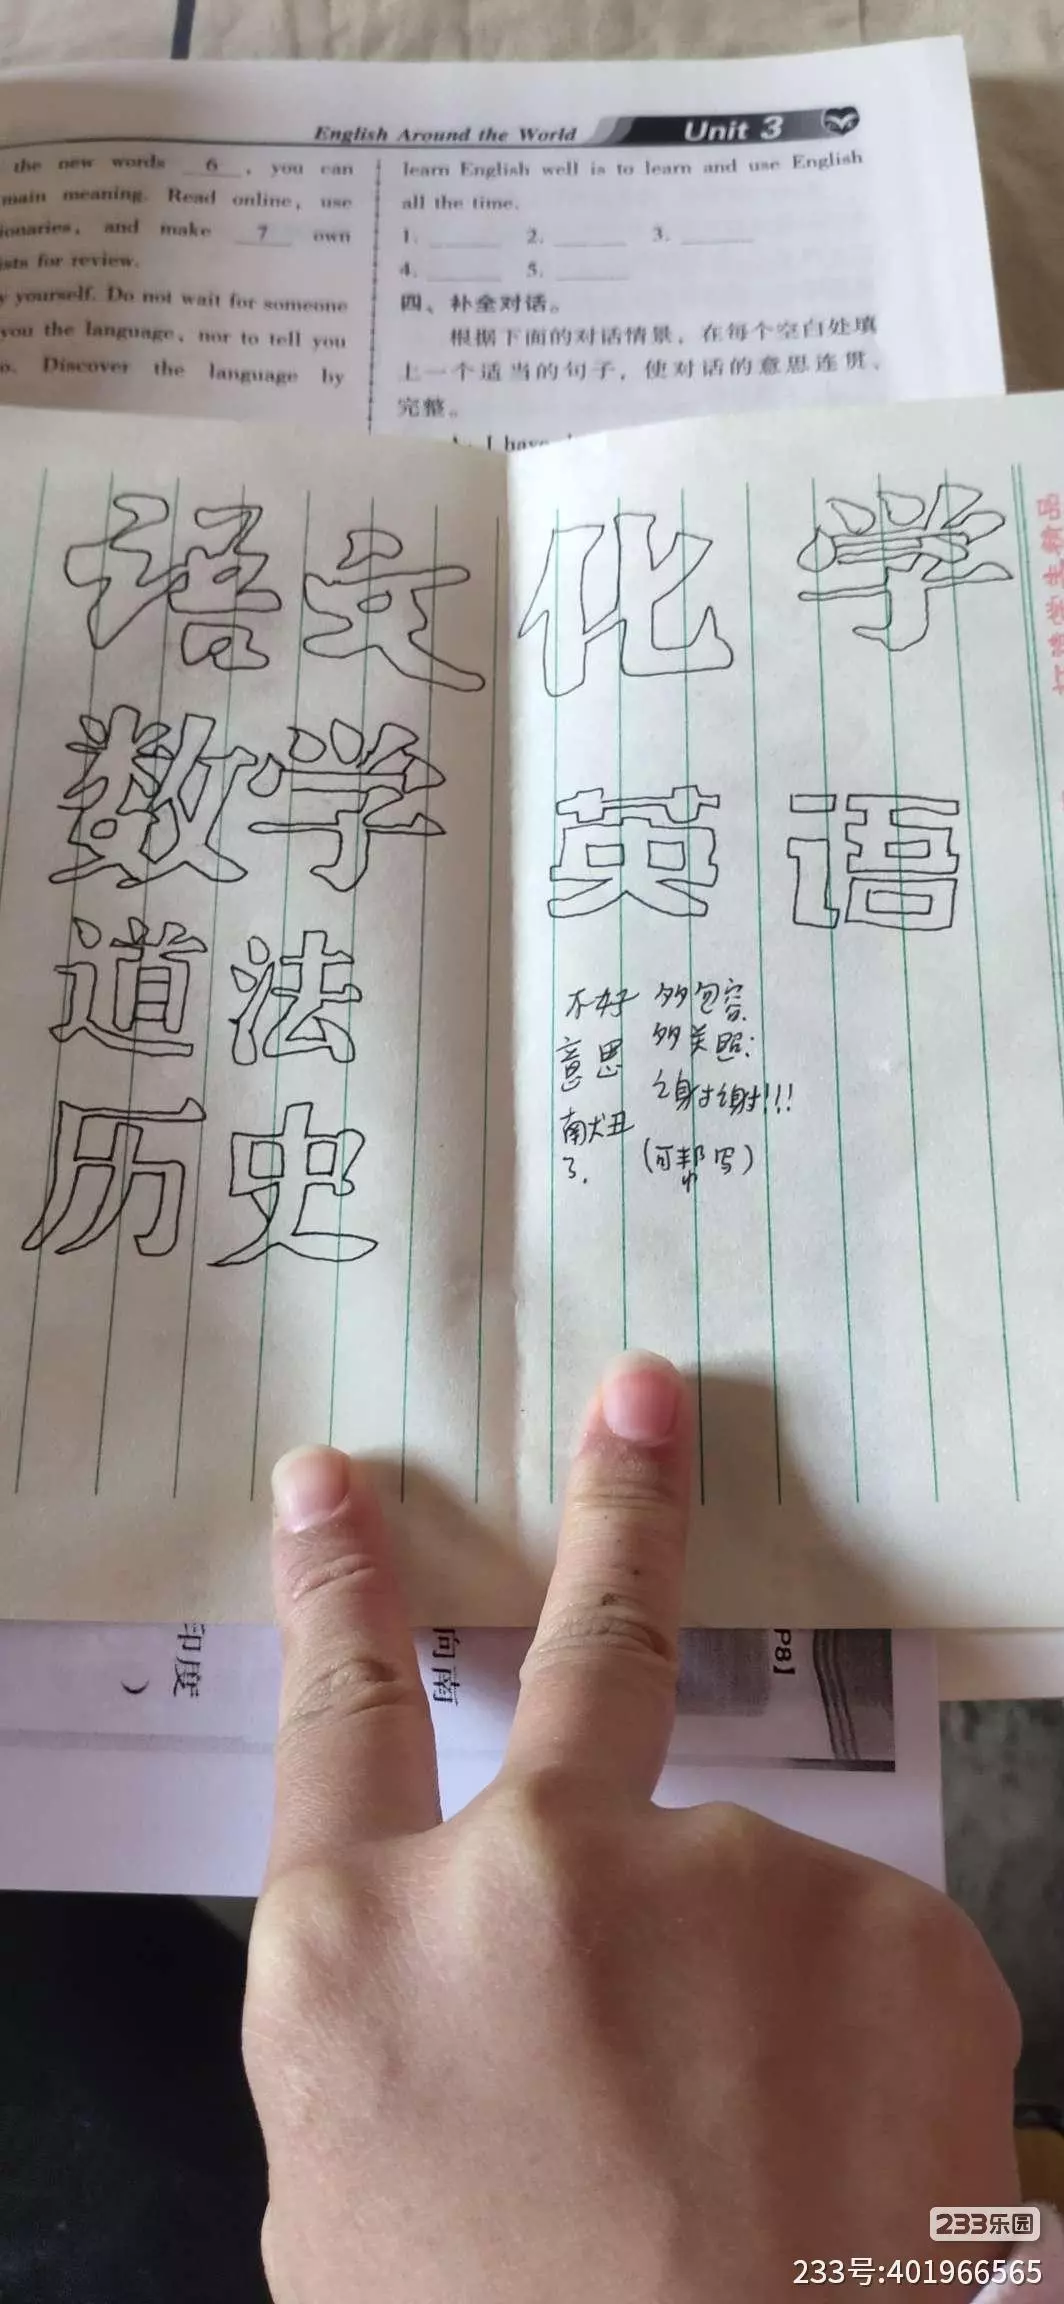 English Around the World Unit 3
the new words 6 , you can
main meaning. Read online, use
ionaries, and make 7 own
ists for review.
y yourself. Do not wait for someone
you the language, nor to tell you
o. Discover the language by
learn English well is to learn and use English
all the time.
1. 2. 3.
4. 5.
四、补全对话。
根据下面的对话情景，在每个空白处填
上一个适当的句子，使对话的意思连贯、
完整。
I have
语文
数学
道法
历史
化学
英语
不好
意思
献丑
了.
多多包容
多多关照:
谢谢!!!
(可帮写)
印度
)
向南
P8】
233乐园
233号:401966565